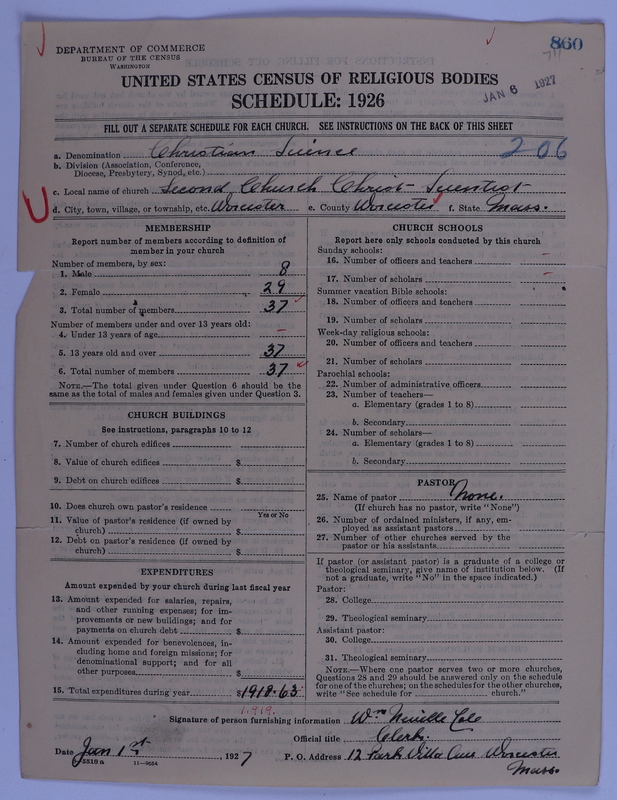 860
DEPARTMENT OF COMMERCE
BUREAU OF THE CENSUS
WASHINGTON
UNITED STATES CENSUS OF RELIGIOUS BODIES
SCHEDULE: 1926
JAN 6 1927
FILL OUT A SEPARATE SCHEDULE FOR EACH CHURCH. SEE INSTRUCTIONS ON THE BACK OF THIS SHEET
a. Denomination Christian Science 206
b. Division (Association, Conference, Diocese, Presbytery, Synod, etc.)
c. Local name of church Second Church Christ - Scientist
d. City, town, village, or township, etc. Worcester e. County Worcester f. State Mass.
MEMBERSHIP
Report number of members according to definition of
member in your church
Number of members, by sex:
1. Male 8
2. Female 29
3. Total number of members 37
Number of members under and over 13 years old:
4. Under 13 years of age –
5. 13 years old and over 37
6. Total number of members 37
NOTE.—The total given under Question 6 should be the
same as the total of males and females given under Question 3.
CHURCH BUILDINGS
See instructions, paragraphs 10 to 12
7. Number of church edifices
8. Value of church edifices $
9. Debt on church edifices $
10. Does church own pastor's residence
Yes or No
11. Value of pastor's residence (if owned by
church) $
12. Debt on pastor's residence (if owned by
church) $
EXPENDITURES
Amount expended by your church during last fiscal year
13. Amount expended for salaries, repairs,
and other running expenses; for im-
provements or new buildings; and for
payments on church debt $
14. Amount expended for benevolences, in-
cluding home and foreign missions; for
denominational support; and for all
other purposes $
15. Total expenditures during year $1918.63
1,919.
CHURCH SCHOOLS
Report here only schools conducted by this church
Sunday schools:
16. Number of officers and teachers –
17. Number of scholars –
Summer vacation Bible schools:
18. Number of officers and teachers
19. Number of scholars
Week-day religious schools:
20. Number of officers and teachers
21. Number of scholars
Parochial schools:
22. Number of administrative officers
23. Number of teachers—
a. Elementary (grades 1 to 8)
b. Secondary
24. Number of scholars—
a. Elementary (grades 1 to 8)
b. Secondary
PASTOR
25. Name of pastor None.
(If church has no pastor, write "None")
26. Number of ordained ministers, if any, em-
ployed as assistant pastors
27. Number of other churches served by the
pastor or his assistants
If pastor (or assistant pastor) is a graduate of a college or
theological seminary, give name of institution below. (If
not a graduate, write "No" in the space indicated.)
Pastor:
28. College
29. Theological seminary
Assistant pastor:
30. College
31. Theological seminary
NOTE.—Where one pastor serves two or more churches,
Questions 28 and 29 should be answered only on the schedule
for one of the churches; on the schedules for the other churches,
write "See schedule for church."
Signature of person furnishing information Wm Neville Cole
Official title Clerk.
Date Jan 1st, 1927 P. O. Address 12 Park Villa Ave Worcester
Mass.
5518 a 11—9684